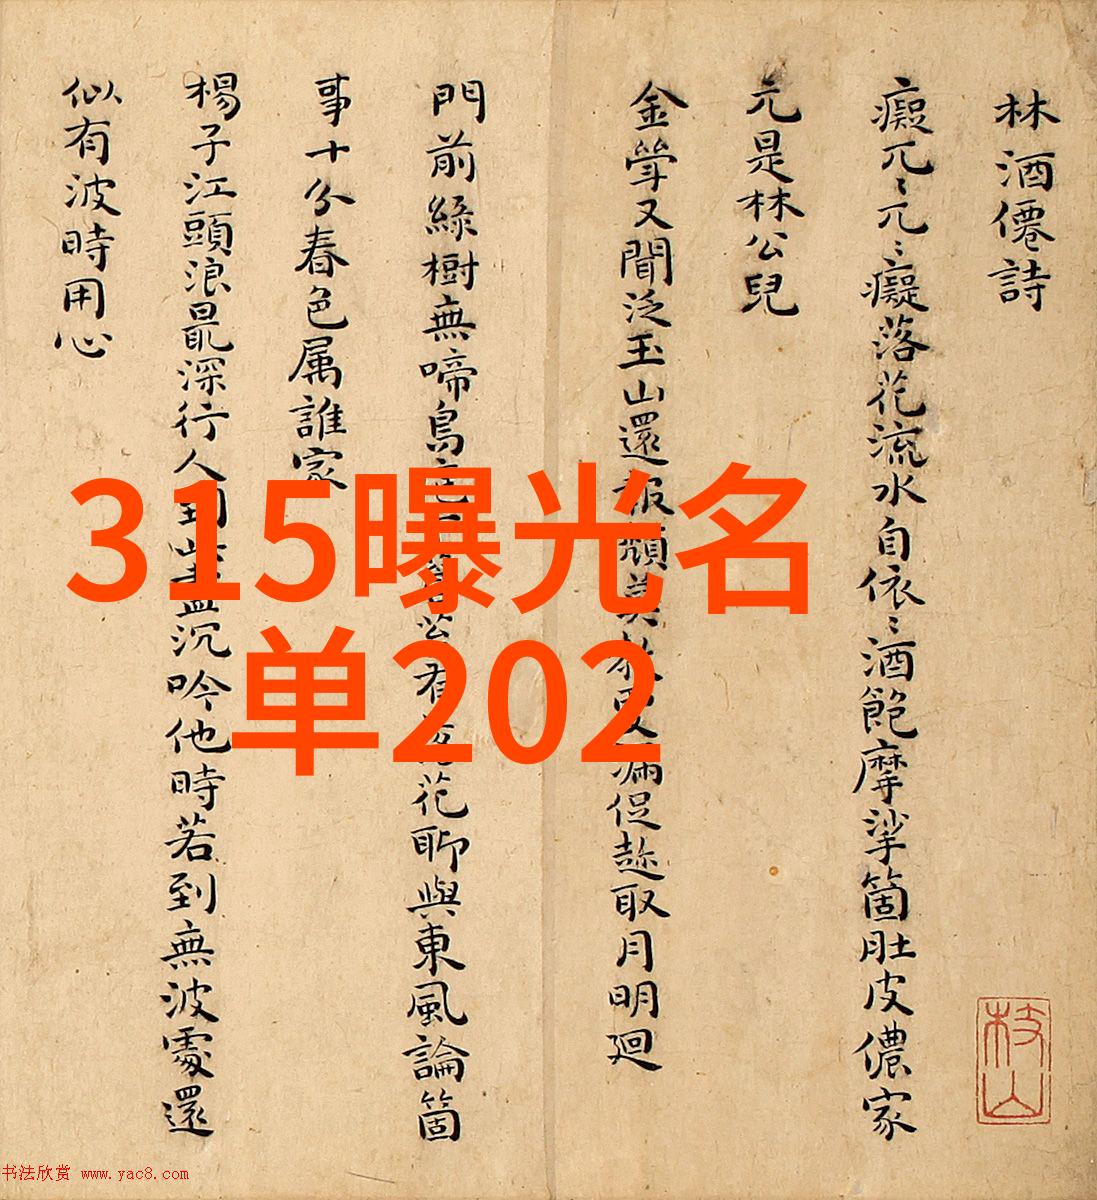 林酒僊詩
癡兀〻兀〻癡落花流水自依〻酒飽摩挲箇肚皮儂家
元是林公兒
金斝又聞泛玉山還報頹莫教更漏促趂取月明迴
門前綠樹無啼鳥 有落花聊與東風論箇
事十分春色属誰家
楊子江頭浪最深行人到此盡沉吟他時若到無波處還
似有波時用心
枝山
315曝光名
单202
书法欣赏 www.yac8.com